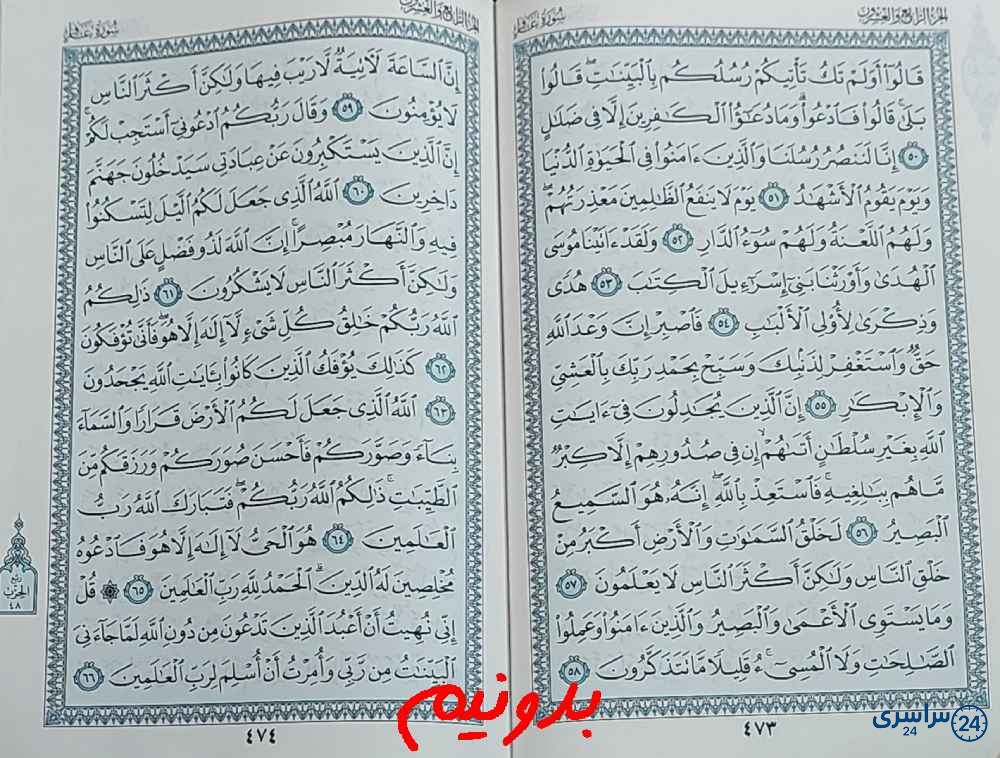 الجزء الرابع والعشرون
سورة غافر
قَالُوٓا۟ أَوَلَمْ تَكُ تَأْتِيكُمْ رُسُلُكُم بِٱلْبَيِّنَٰتِ ۖ قَالُوا۟
بَلَىٰ ۚ قَالُوا۟ فَٱدْعُوا۟ ۗ وَمَا دُعَٰٓؤُا۟ ٱلْكَٰفِرِينَ إِلَّا فِى ضَلَٰلٍ
٥٠ إِنَّا لَنَنصُرُ رُسُلَنَا وَٱلَّذِينَ ءَامَنُوا۟ فِى ٱلْحَيَوٰةِ ٱلدُّنْيَا
وَيَوْمَ يَقُومُ ٱلْأَشْهَٰدُ ٥١ يَوْمَ لَا يَنفَعُ ٱلظَّٰلِمِينَ مَعْذِرَتُهُمْ ۖ
وَلَهُمُ ٱللَّعْنَةُ وَلَهُمْ سُوٓءُ ٱلدَّارِ ٥٢ وَلَقَدْ ءَاتَيْنَا مُوسَى
ٱلْهُدَىٰ وَأَوْرَثْنَا بَنِىٓ إِسْرَٰٓءِيلَ ٱلْكِتَٰبَ ٥٣ هُدًى
وَذِكْرَىٰ لِأُو۟لِى ٱلْأَلْبَٰبِ ٥٤ فَٱصْبِرْ إِنَّ وَعْدَ ٱللَّهِ
حَقٌّ وَٱسْتَغْفِرْ لِذَنۢبِكَ وَسَبِّحْ بِحَمْدِ رَبِّكَ بِٱلْعَشِىِّ
وَٱلْإِبْكَٰرِ ٥٥ إِنَّ ٱلَّذِينَ يُجَٰدِلُونَ فِىٓ ءَايَٰتِ
ٱللَّهِ بِغَيْرِ سُلْطَٰنٍ أَتَىٰهُمْ ۙ إِن فِى صُدُورِهِمْ إِلَّا كِبْرٌ
مَّا هُم بِبَٰلِغِيهِ ۚ فَٱسْتَعِذْ بِٱللَّهِ ۖ إِنَّهُۥ هُوَ ٱلسَّمِيعُ
ٱلْبَصِيرُ ٥٦ لَخَلْقُ ٱلسَّمَٰوَٰتِ وَٱلْأَرْضِ أَكْبَرُ مِنْ
خَلْقِ ٱلنَّاسِ وَلَٰكِنَّ أَكْثَرَ ٱلنَّاسِ لَا يَعْلَمُونَ ٥٧
وَمَا يَسْتَوِى ٱلْأَعْمَىٰ وَٱلْبَصِيرُ وَٱلَّذِينَ ءَامَنُوا۟ وَعَمِلُوا۟
ٱلصَّٰلِحَٰتِ وَلَا ٱلْمُسِىٓءُ ۚ قَلِيلًا مَّا تَتَذَكَّرُونَ ٥٨
٤٧٣
الجزء الرابع والعشرون
سورة غافر
إِنَّ ٱلسَّاعَةَ لَءَاتِيَةٌ لَّا رَيْبَ فِيهَا وَلَٰكِنَّ أَكْثَرَ ٱلنَّاسِ
لَا يُؤْمِنُونَ ٥٩ وَقَالَ رَبُّكُمُ ٱدْعُونِىٓ أَسْتَجِبْ لَكُمْ ۚ
إِنَّ ٱلَّذِينَ يَسْتَكْبِرُونَ عَنْ عِبَادَتِى سَيَدْخُلُونَ جَهَنَّمَ
دَاخِرِينَ ٦٠ ٱللَّهُ ٱلَّذِى جَعَلَ لَكُمُ ٱلَّيْلَ لِتَسْكُنُوا۟
فِيهِ وَٱلنَّهَارَ مُبْصِرًا ۚ إِنَّ ٱللَّهَ لَذُو فَضْلٍ عَلَى ٱلنَّاسِ
وَلَٰكِنَّ أَكْثَرَ ٱلنَّاسِ لَا يَشْكُرُونَ ٦١ ذَٰلِكُمُ
ٱللَّهُ رَبُّكُمْ خَٰلِقُ كُلِّ شَىْءٍ لَّآ إِلَٰهَ إِلَّا هُوَ ۖ فَأَنَّىٰ تُؤْفَكُونَ
٦٢ كَذَٰلِكَ يُؤْفَكُ ٱلَّذِينَ كَانُوا۟ بِـَٔايَٰتِ ٱللَّهِ يَجْحَدُونَ
٦٣ ٱللَّهُ ٱلَّذِى جَعَلَ لَكُمُ ٱلْأَرْضَ قَرَارًا وَٱلسَّمَآءَ
بِنَآءً وَصَوَّرَكُمْ فَأَحْسَنَ صُوَرَكُمْ وَرَزَقَكُم مِّنَ
ٱلطَّيِّبَٰتِ ۚ ذَٰلِكُمُ ٱللَّهُ رَبُّكُمْ ۖ فَتَبَارَكَ ٱللَّهُ رَبُّ
ٱلْعَٰلَمِينَ ٦٤ هُوَ ٱلْحَىُّ لَآ إِلَٰهَ إِلَّا هُوَ فَٱدْعُوهُ
مُخْلِصِينَ لَهُ ٱلدِّينَ ۗ ٱلْحَمْدُ لِلَّهِ رَبِّ ٱلْعَٰلَمِينَ ٦٥ ۞ قُلْ
إِنِّى نُهِيتُ أَنْ أَعْبُدَ ٱلَّذِينَ تَدْعُونَ مِن دُونِ ٱللَّهِ لَمَّا جَآءَنِىَ
ٱلْبَيِّنَٰتُ مِن رَّبِّى وَأُمِرْتُ أَنْ أُسْلِمَ لِرَبِّ ٱلْعَٰلَمِينَ ٦٦
٤٧٤
ربع
الحزب
٤٨
بدونیم
سراسری 24
24